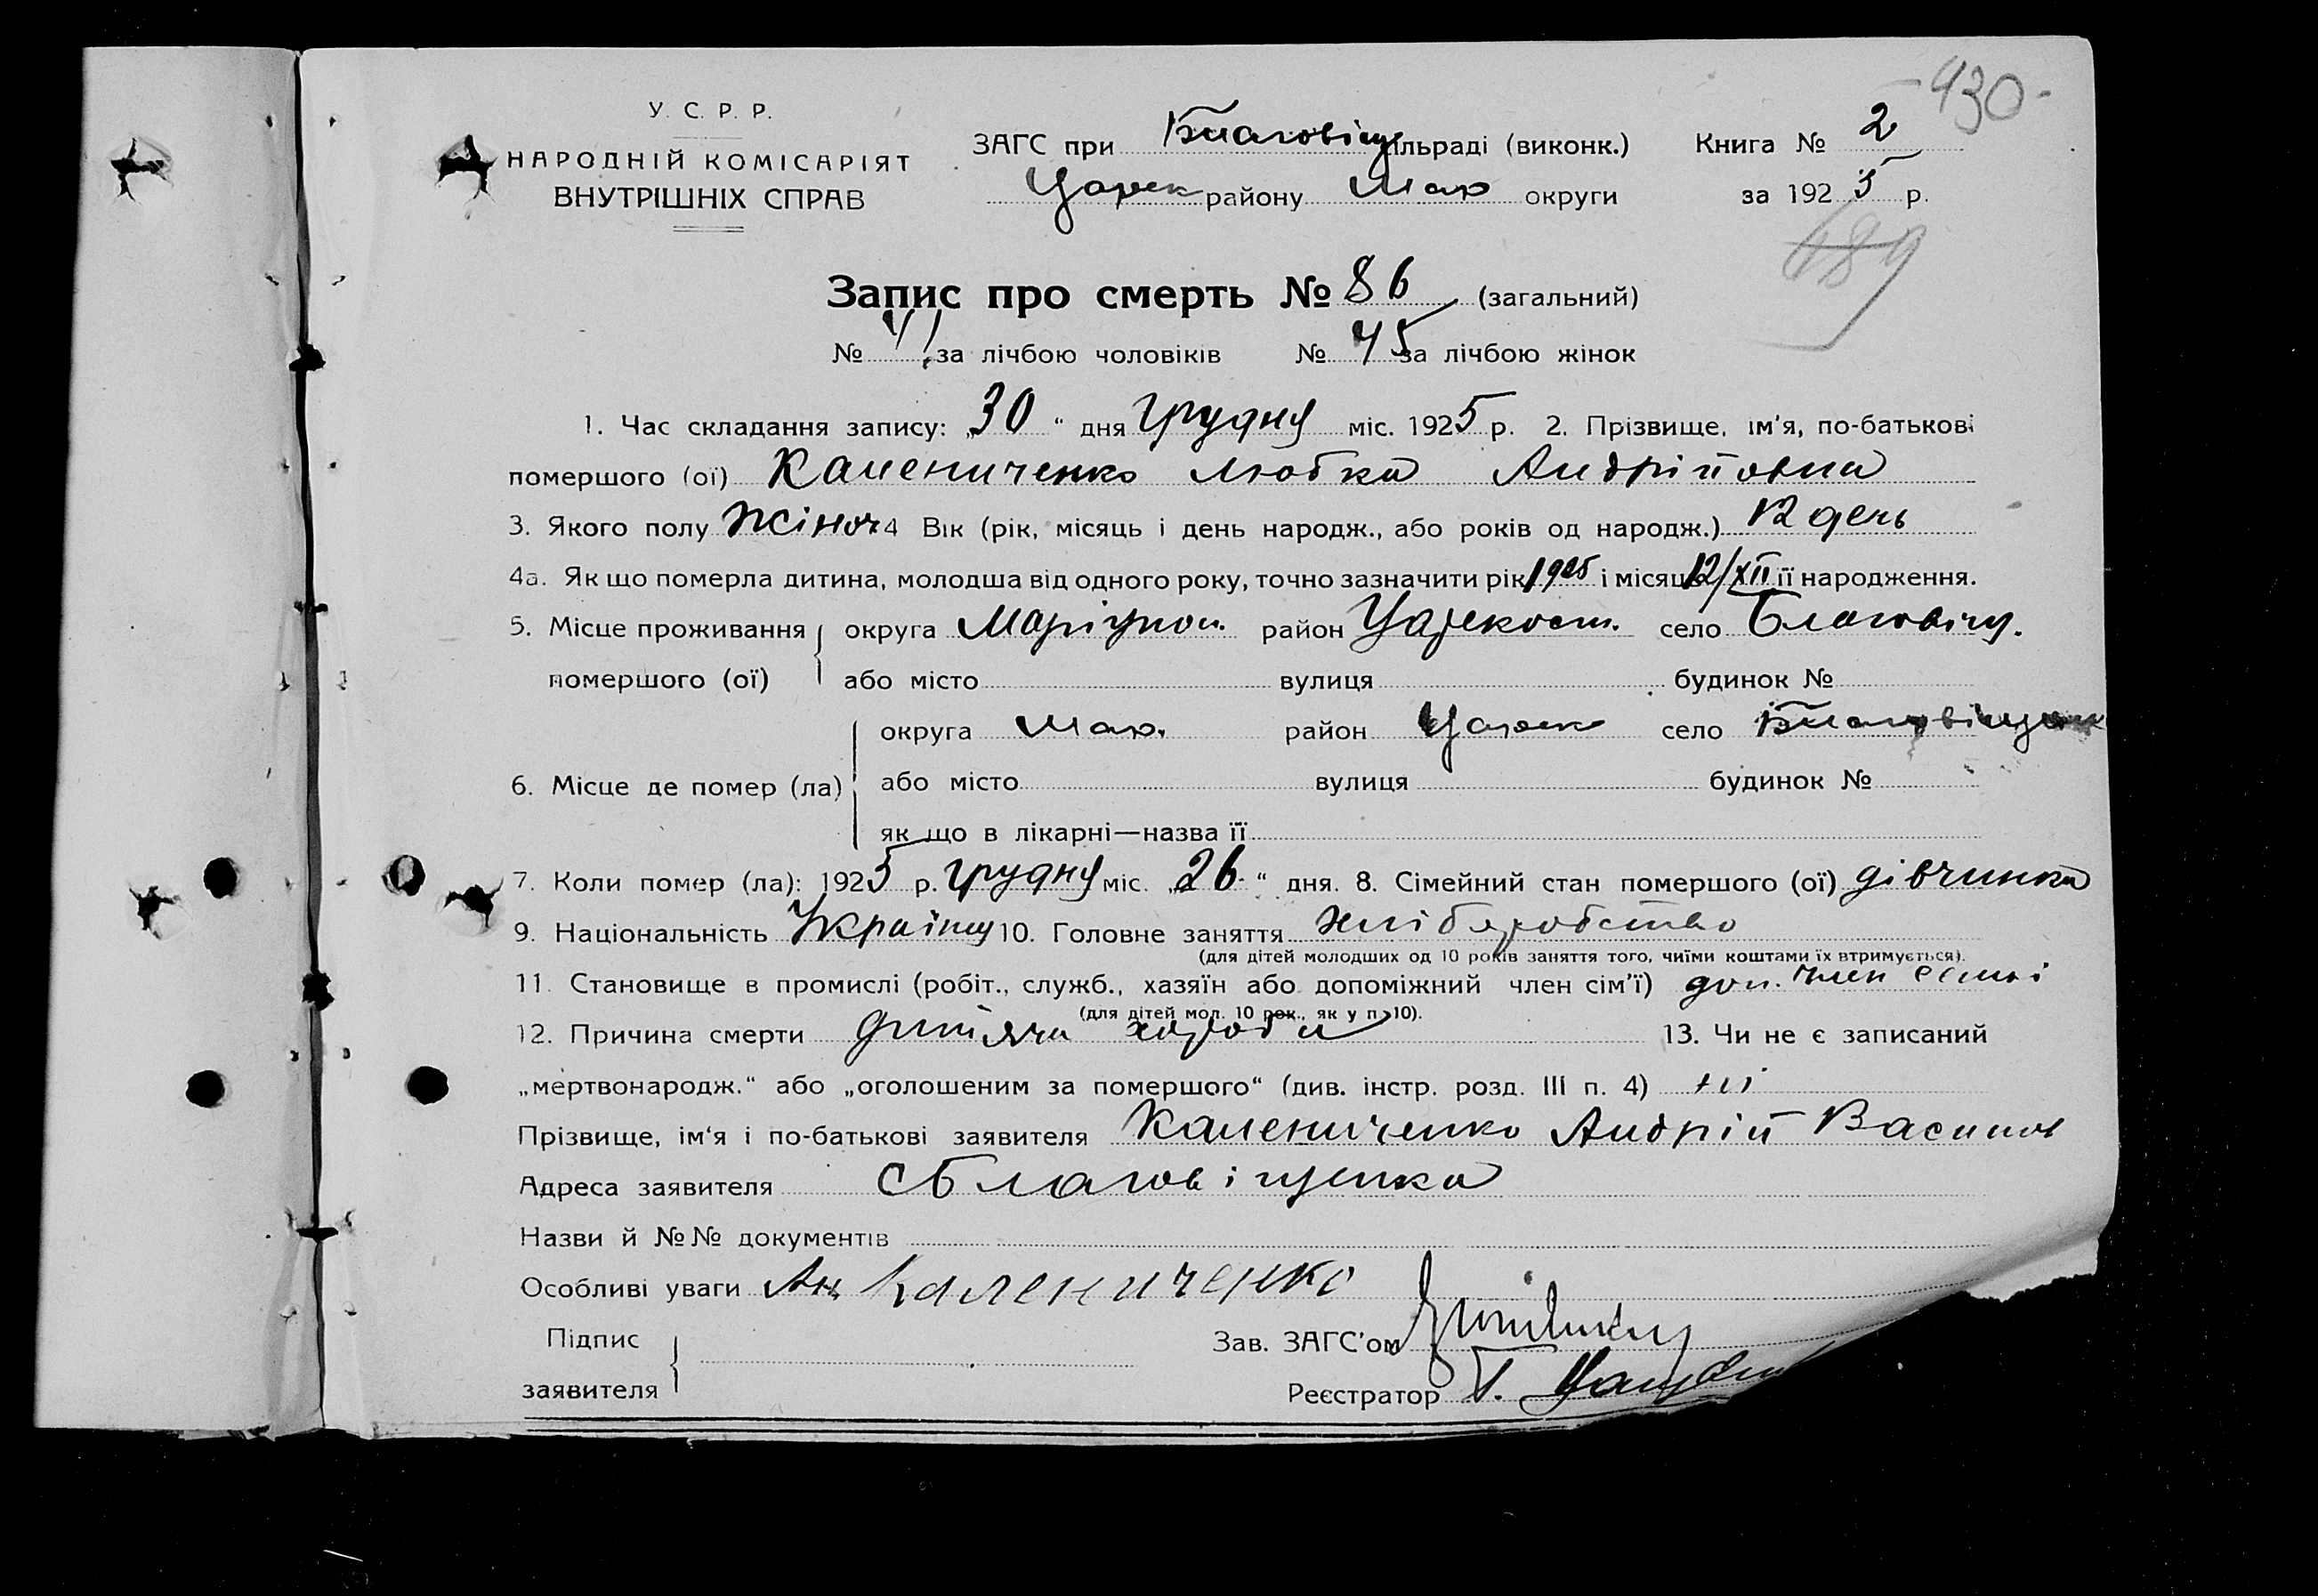 -430-
У. С. Р. Р.
НАРОДНІЙ КОМІСАРІЯТ
ВНУТРІШНІХ СПРАВ
ЗАГС при Благовіщ ільраді (виконк.) Книга № 2
Царек району Мар округи за 1925 р.
689
Запис про смерть № 86 (загальний)
№ 41 за лічбою чоловіків № 45 за лічбою жінок
1. Час складання запису: „30“ дня грудня міс. 1925 р. 2. Прізвище, ім'я, по-батькові
помершого (ої) Калениченко Любка Андріївна
3. Якого полу жіноч 4 Вік (рік, місяць і день народж., або років од народж.) 12 день
4а. Як що померла дитина, молодша від одного року, точно зазначити рік 1925 і місяць 12/XII її народження.
5. Місце проживання округа Маріупол. район Царекост. село Благовіщ.
помершого (ої) або місто вулиця будинок №
округа Мар. район Царек село Благовіщенк
6. Місце де помер (ла) або місто вулиця будинок №
як що в лікарні—назва її
7. Коли помер (ла): 1925 р. грудня міс. „26“ дня. 8. Сімейний стан помершого (ої) дівчинка
9. Національність Україн 10. Головне заняття хліборобство
(для дітей молодших од 10 років заняття того, чиїми коштами їх втримується).
11. Становище в промислі (робіт., служб., хазяїн або допоміжний член сім'ї) доп. член семьі
(для дітей мол. 10 рок., як у п. 10).
12. Причина смерти дитяча хороба 13. Чи не є записаний
„мертвонародж.“ або „оголошеним за помершого“ (див. інстр. розд. III п. 4) ні
Прізвище, ім'я і по-батькові заявителя Калениченко Андрій Василов
Адреса заявителя с Благовіщенка
Назви й №№ документів
Особливі уваги Ан Калениченко
Підпис
заявителя
Зав. ЗАГС'ом
Реєстратор Т.